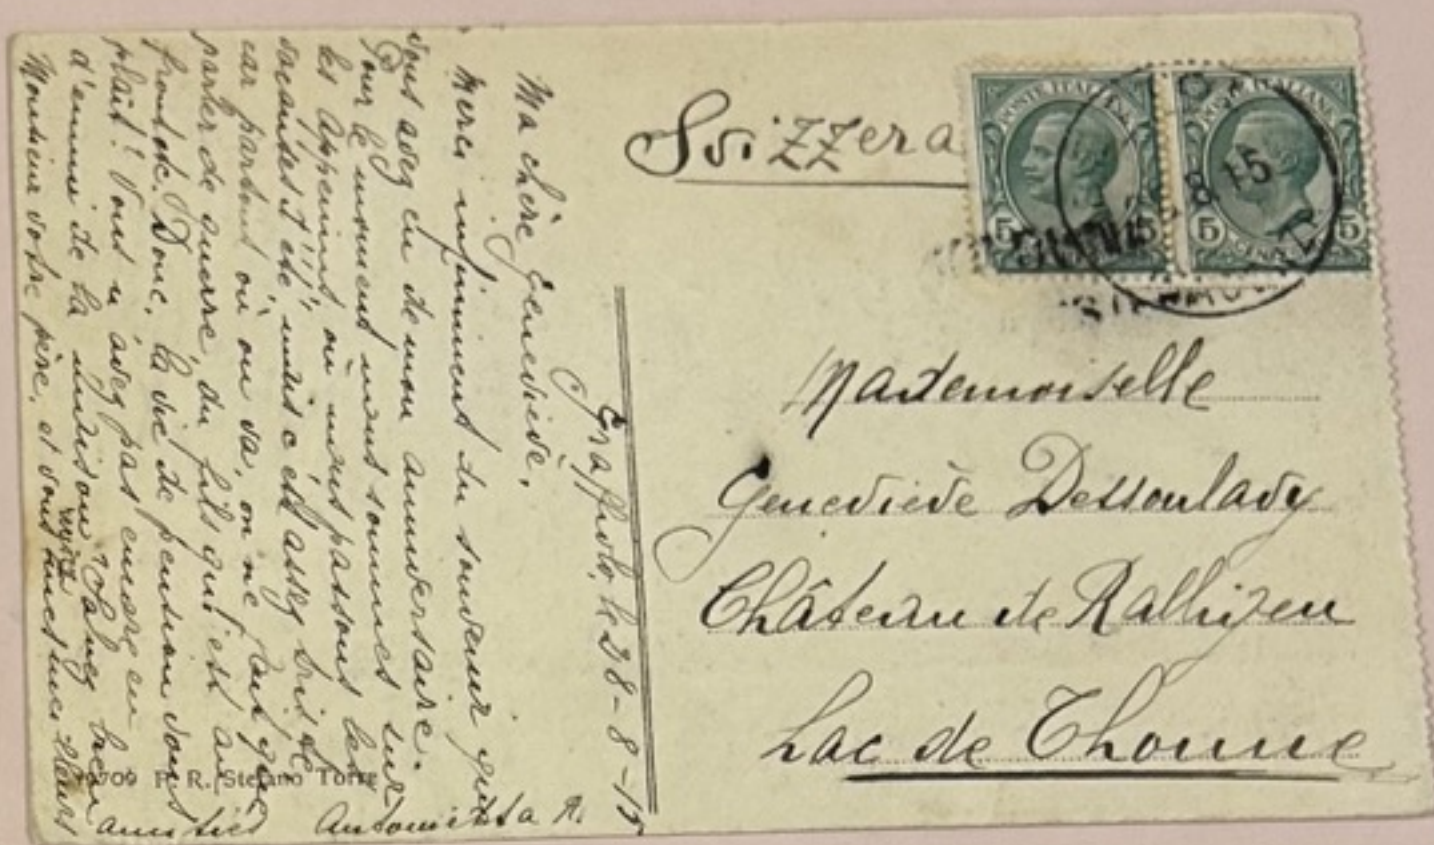 Svizzera
POSTE ITALIANE
5 CENT. 5
POSTE ITALIANE
5 CENT. 5
8 15
Mademoiselle
Geneviève Dessoulavy
Château de Ralligen
Lac de Thoune
le 28-8-15
Ma chère Geneviève,
Merci infiniment du souvenir que
vous avez eu de mon anniversaire.
Pour le moment nous sommes sur
les Appenins où nous passons les
vacances d'été, mais c'est assez triste
car partout où on va, on ne fait que
parler de guerre, du fils qui est au
front etc. Donc, la vie de pension vous
plaît? Vous n'avez pas encore eu
d'ennui de la maison? Saluez bien
Monsieur votre père, et vous reçevez mes meilleurs
amitiés Antonietta R.
709 P. R. Stefano Torre